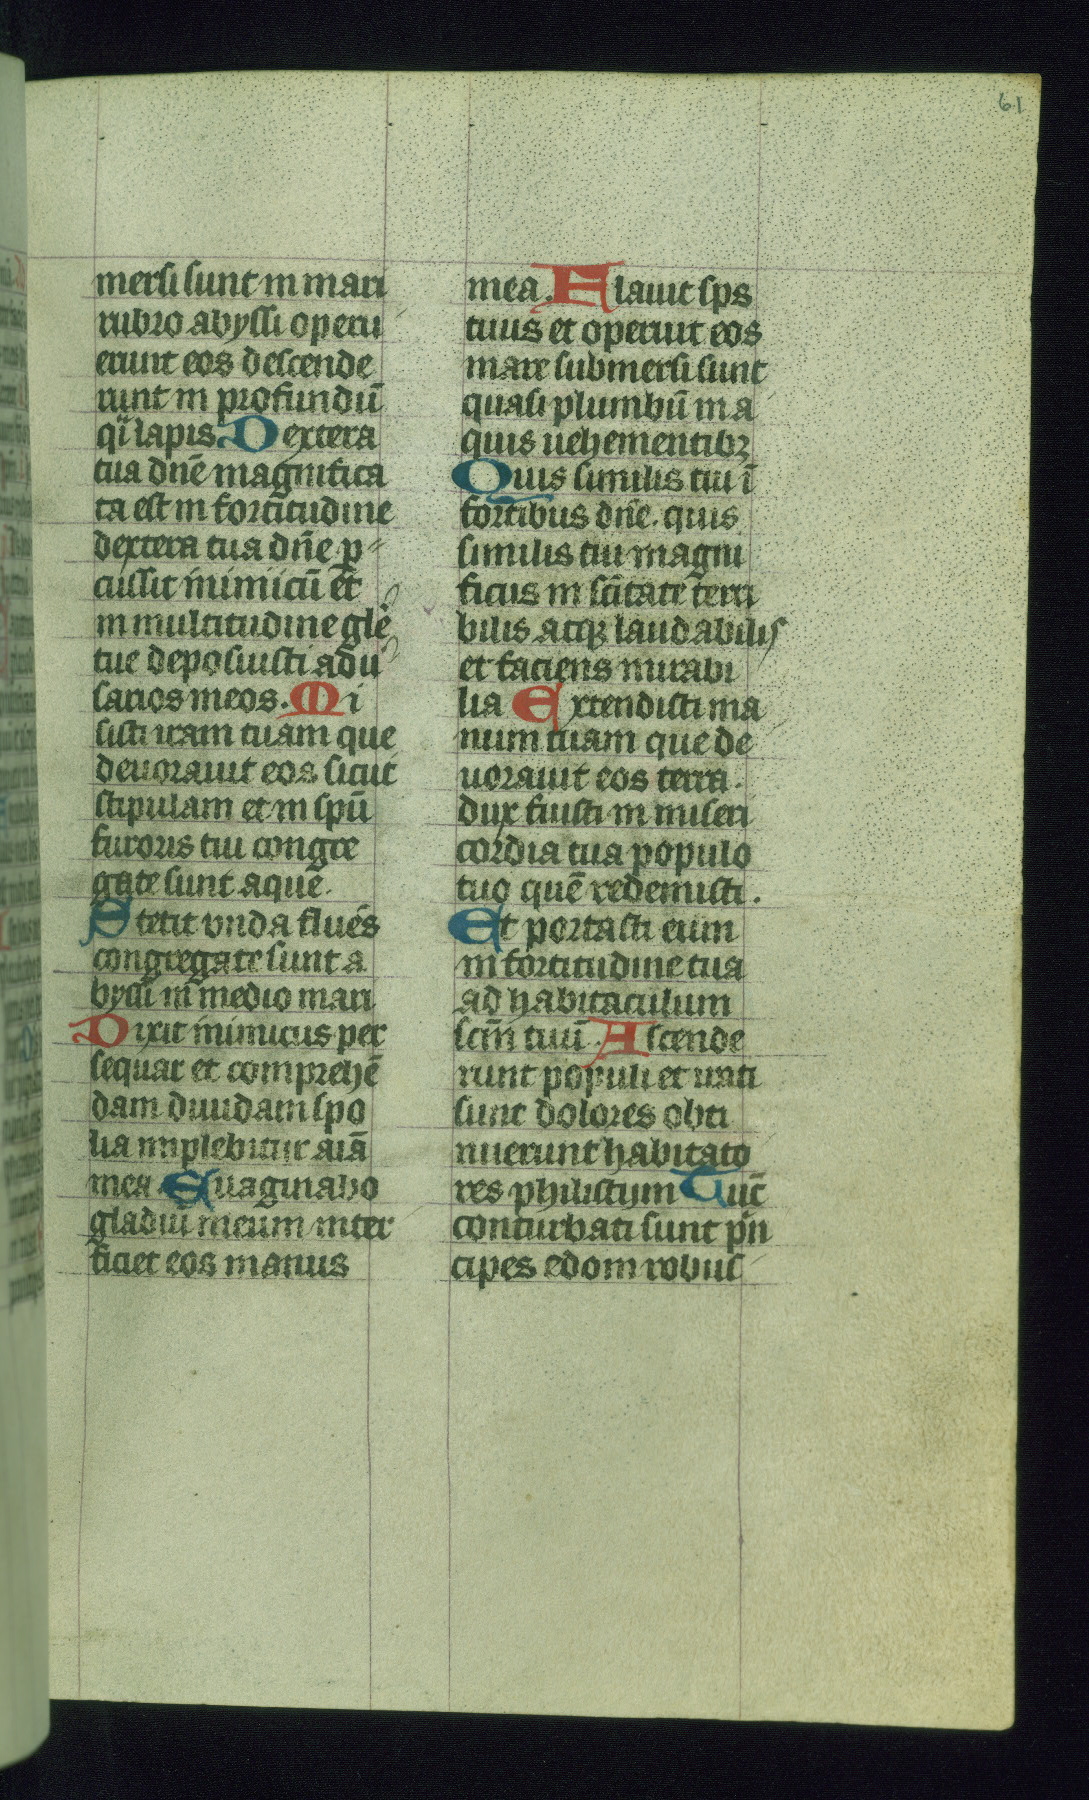 61
mersi sunt in mari
rubro abyssi operu
erunt eos descende
runt in profundū
qͥ lapis. Dextera
tua dn̄e magnifica
ta est in fortitudine
dextera tua dn̄e ꝑ
cussit inimicū et
in multitudine glē
tue deposuisti adu
sarios meos. Mi
sisti iram tuam que
deuorauit eos sicut
stipulam et in spū
furoris tui congre
gate sunt aque.
Stetit vnda fluēs
congregate sunt a
byssi in medio mari
Dixit inimicus per
sequar et comprehē
dam diuidam spo
lia implebitur aīa
mea. Euaginabo
gladiū meum inter
ficiet eos manus
mea. Flauit sp̄s
tuus et operuit eos
mare submersi sunt
quasi plumbū in a
quis uehementibꝫ
Quis similis tui ī
fortibus dn̄e. quis
similis tui magni
ficus in scītate terri
bilis atqꝫ laudabilis
et faciens mirabi
lia Extendisti ma
num tuam que de
uorauit eos terra.
dux fuisti in miseri
cordia tua populo
tuo quē redemisti.
Et portasti eum
in fortitudine tua
ad habitaculum
scm̄ tuū. Ascende
runt populi et irati
sunt dolores obti
nuerunt habitato
res philistijm Tūc
conturbati sunt pͥn
cipes edom robus